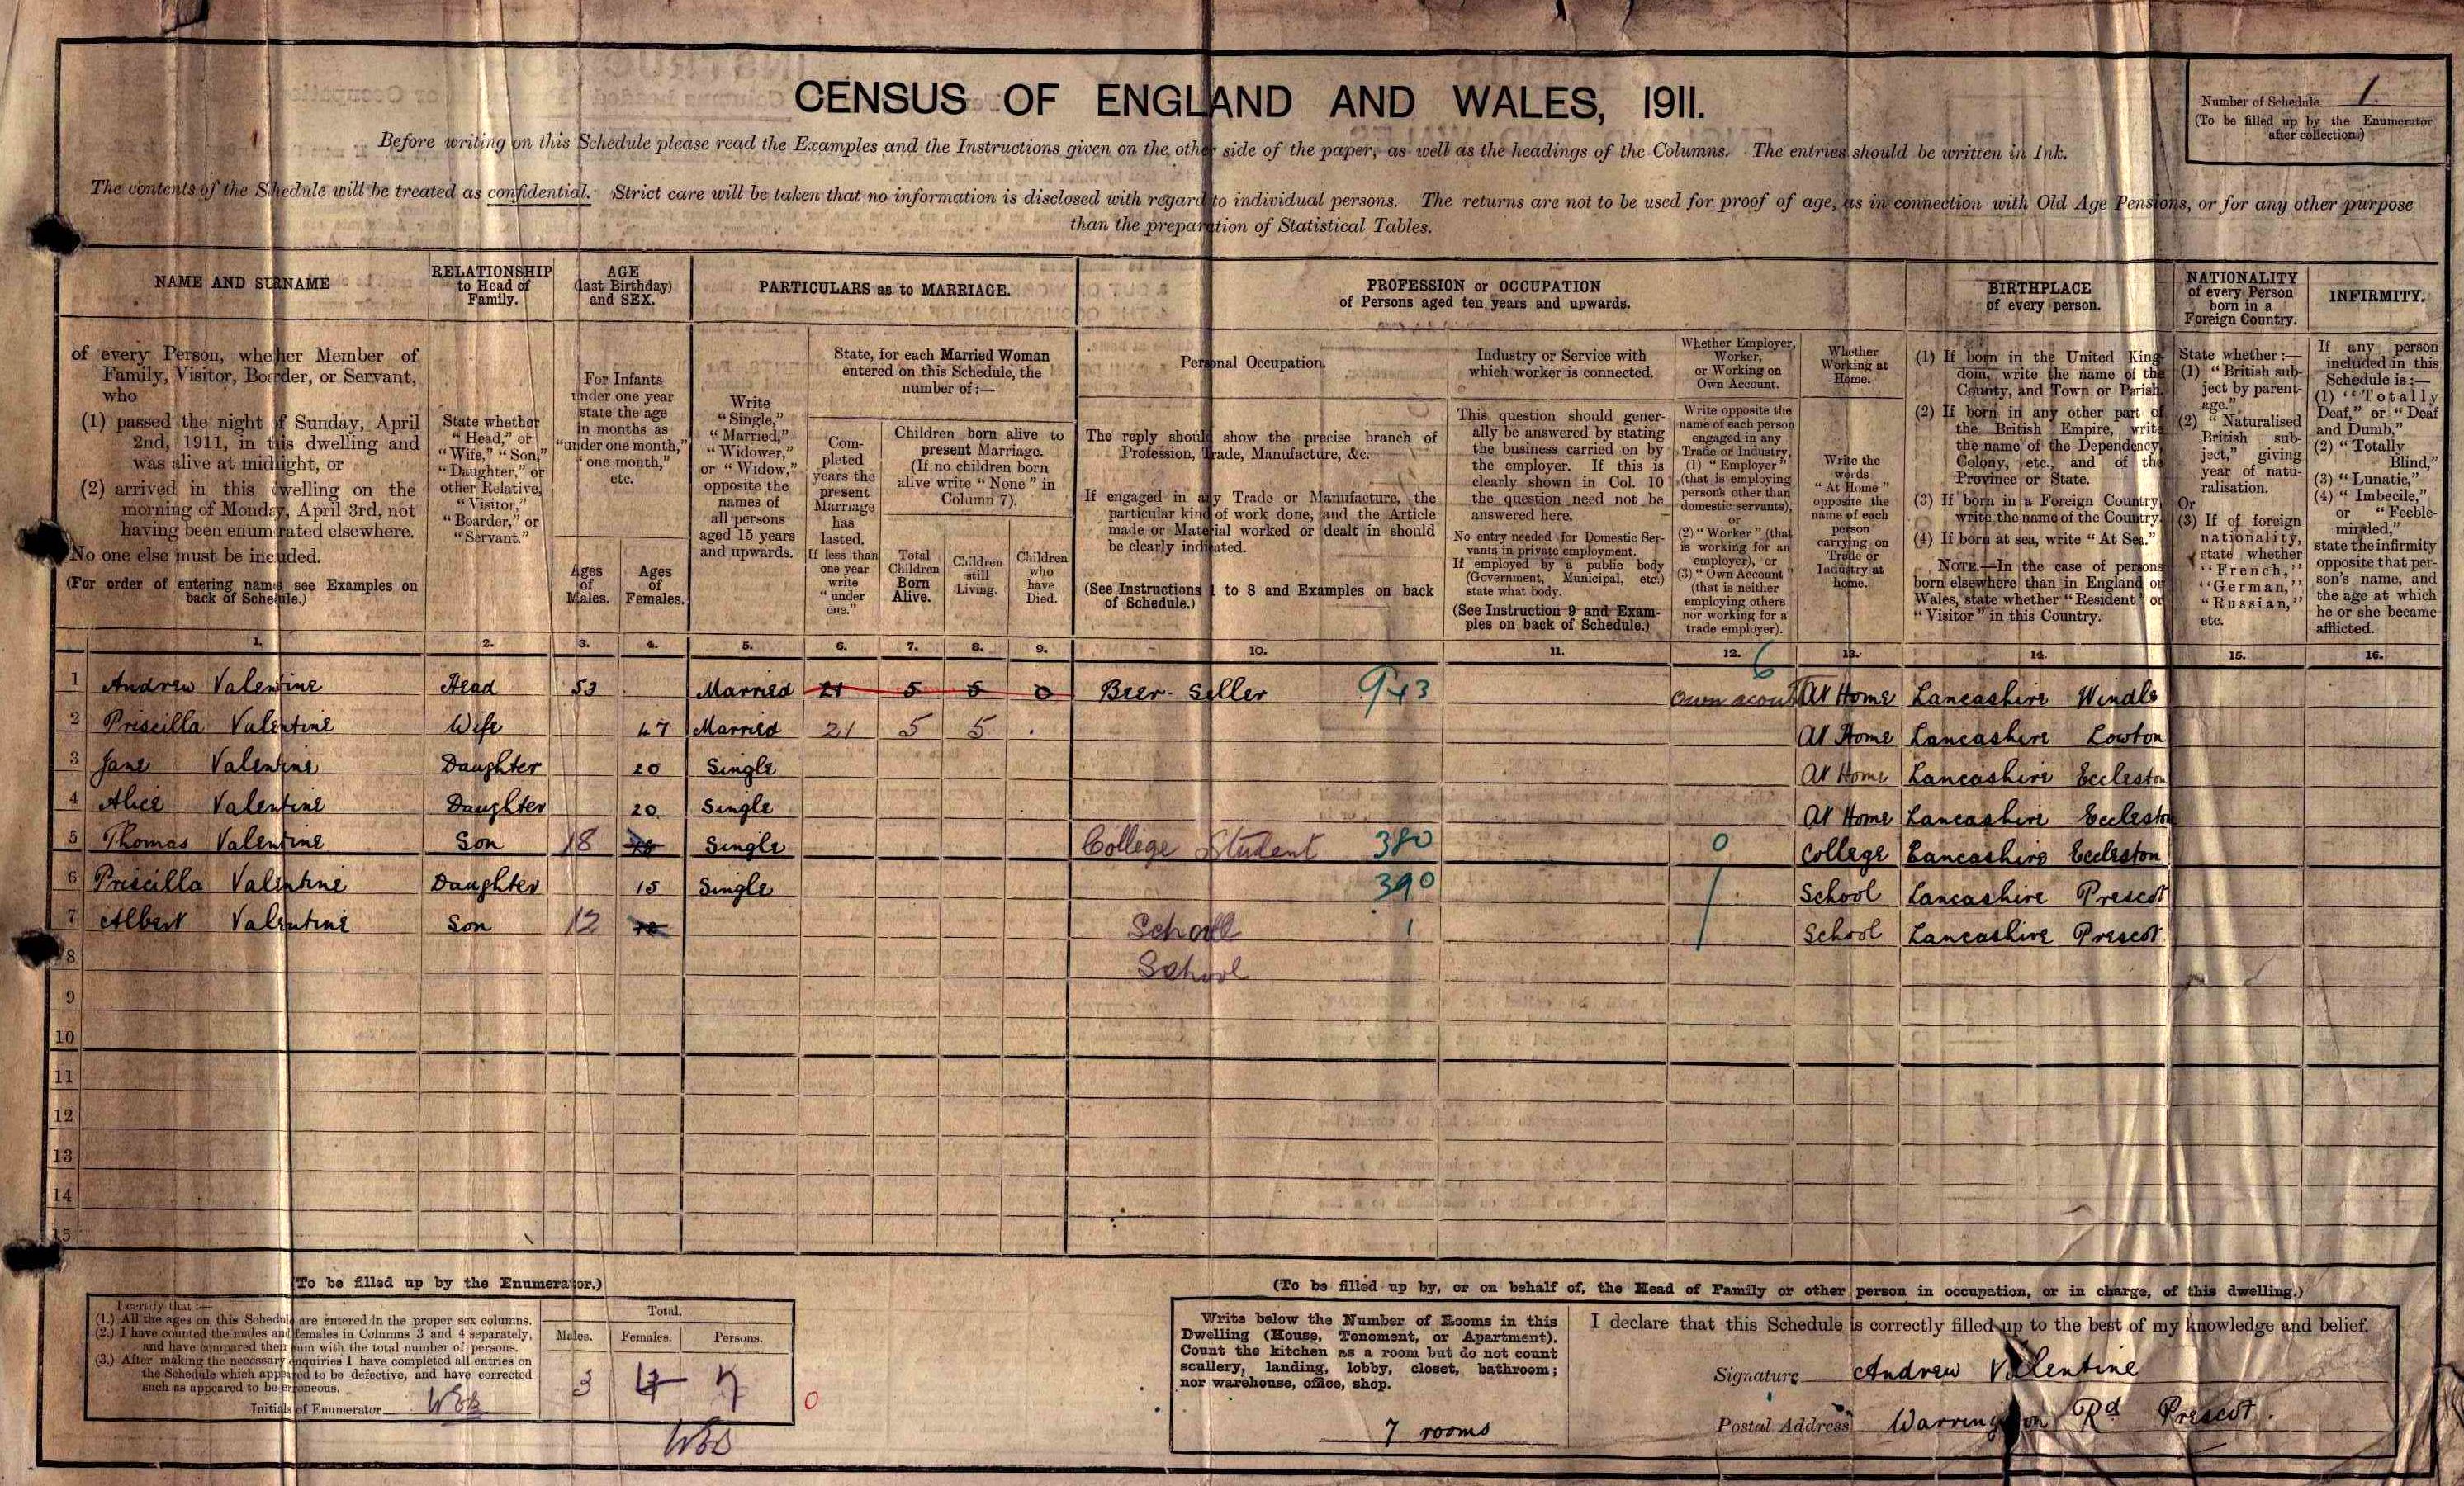 CENSUS OF ENGLAND AND WALES, 1911.
Number of Schedule 1.
(To be filled up by the Enumerator
after collection.)
Before writing on this Schedule please read the Examples and the Instructions given on the other side of the paper, as well as the headings of the Columns. The entries should be written in Ink.
The contents of the Schedule will be treated as confidential. Strict care will be taken that no information is disclosed with regard to individual persons. The returns are not to be used for proof of age, as in connection with Old Age Pensions, or for any other purpose
than the preparation of Statistical Tables.
NAME AND SURNAME
of every Person, whether Member of
Family, Visitor, Boarder, or Servant,
who
(1) passed the night of Sunday, April
2nd, 1911, in this dwelling and
was alive at midnight, or
(2) arrived in this dwelling on the
morning of Monday, April 3rd, not
having been enumerated elsewhere.
No one else must be included.
(For order of entering names see Examples on
back of Schedule.)
1.
RELATIONSHIP
to Head of
Family.
State whether
"Head," or
"Wife," "Son,"
"Daughter," or
other Relative,
"Visitor,"
"Boarder," or
"Servant."
2.
AGE
(last Birthday)
and SEX.
For Infants
under one year
state the age
in months as
"under one month,"
"one month,"
etc.
Ages
of
Males.
3.
Ages
of
Females.
4.
PARTICULARS as to MARRIAGE.
Write
"Single,"
"Married,"
"Widower,"
or "Widow,"
opposite the
names of
all persons
aged 15 years
and upwards.
5.
State, for each Married Woman
entered on this Schedule, the
number of:—
Com-
pleted
years the
present
Marriage
has
lasted.
If less than
one year
write
"under
one."
6.
Children born alive to
present Marriage.
(If no children born
alive write "None" in
Column 7).
Total
Children
Born
Alive.
7.
Children
still
Living.
8.
Children
who
have
Died.
9.
PROFESSION or OCCUPATION
of Persons aged ten years and upwards.
Personal Occupation.
The reply should show the precise branch of
Profession, Trade, Manufacture, &c.
If engaged in any Trade or Manufacture, the
particular kind of work done, and the Article
made or Material worked or dealt in should
be clearly indicated.
(See Instructions 1 to 8 and Examples on back
of Schedule.)
10.
Industry or Service with
which worker is connected.
This question should gener-
ally be answered by stating
the business carried on by
the employer. If this is
clearly shown in Col. 10
the question need not be
answered here.
No entry needed for Domestic Ser-
vants in private employment.
If employed by a public body
(Government, Municipal, etc.)
state what body.
(See Instruction 9 and Exam-
ples on back of Schedule.)
11.
Whether Employer,
Worker,
or Working on
Own Account.
Write opposite the
name of each person
engaged in any
Trade or Industry,
(1) "Employer"
(that is employing
persons other than
domestic servants),
or
(2) "Worker" (that
is working for an
employer), or
(3) "Own Account"
(that is neither
employing others
nor working for a
trade employer).
12.
Whether
Working at
Home.
Write the
words
"At Home"
opposite the
name of each
person
carrying on
Trade or
Industry at
home.
13.
BIRTHPLACE
of every person.
(1) If born in the United King-
dom, write the name of the
County, and Town or Parish.
(2) If born in any other part of
the British Empire, write
the name of the Dependency,
Colony, etc., and of the
Province or State.
(3) If born in a Foreign Country,
write the name of the Country.
(4) If born at sea, write "At Sea."
NOTE.—In the case of persons
born elsewhere than in England or
Wales, state whether "Resident" or
"Visitor" in this Country.
14.
NATIONALITY
of every Person
born in a
Foreign Country.
State whether:—
(1) "British sub-
ject by parent-
age."
(2) "Naturalised
British sub-
ject," giving
year of natu-
ralisation.
Or
(3) If of foreign
nationality,
state whether
"French,"
"German,"
"Russian,"
etc.
15.
INFIRMITY.
If any person
included in this
Schedule is:—
(1) "Totally
Deaf," or "Deaf
and Dumb,"
(2) "Totally
Blind,"
(3) "Lunatic,"
(4) "Imbecile,"
or "Feeble-
minded,"
state the infirmity
opposite that per-
son's name, and
the age at which
he or she became
afflicted.
16.
1 Andrew Valentine Head 53 Married 21 5 5 0 Beer Seller 943 own acount 6 At Home Lancashire Windle
2 Priscilla Valentine Wife 47 Married 21 5 5 . At Home Lancashire Lowton
3 Jane Valentine Daughter 20 Single At Home Lancashire Eccleston
4 Alice Valentine Daughter 20 Single At Home Lancashire Eccleston
5 Thomas Valentine Son 18 Single College Student 380 0 College Lancashire Eccleston
6 Priscilla Valentine Daughter 15 Single 390 School Lancashire Prescot
7 Albert Valentine Son 12 School 1 School Lancashire Prescot
8 School
9
10
11
12
13
14
15
(To be filled up by the Enumerator.)
I certify that:—
(1.) All the ages on this Schedule are entered in the proper sex columns.
(2.) I have counted the males and females in Columns 3 and 4 separately,
and have compared their sum with the total number of persons.
(3.) After making the necessary enquiries I have completed all entries on
the Schedule which appeared to be defective, and have corrected
such as appeared to be erroneous.
Initials of Enumerator
Total.
Males. Females. Persons.
3 4 7
0
(To be filled up by, or on behalf of, the Head of Family or other person in occupation, or in charge, of this dwelling.)
Write below the Number of Rooms in this
Dwelling (House, Tenement, or Apartment).
Count the kitchen as a room but do not count
scullery, landing, lobby, closet, bathroom;
nor warehouse, office, shop.
7 rooms
I declare that this Schedule is correctly filled up to the best of my knowledge and belief.
Signature Andrew Valentine
Postal Address Warrington Rd Prescot.